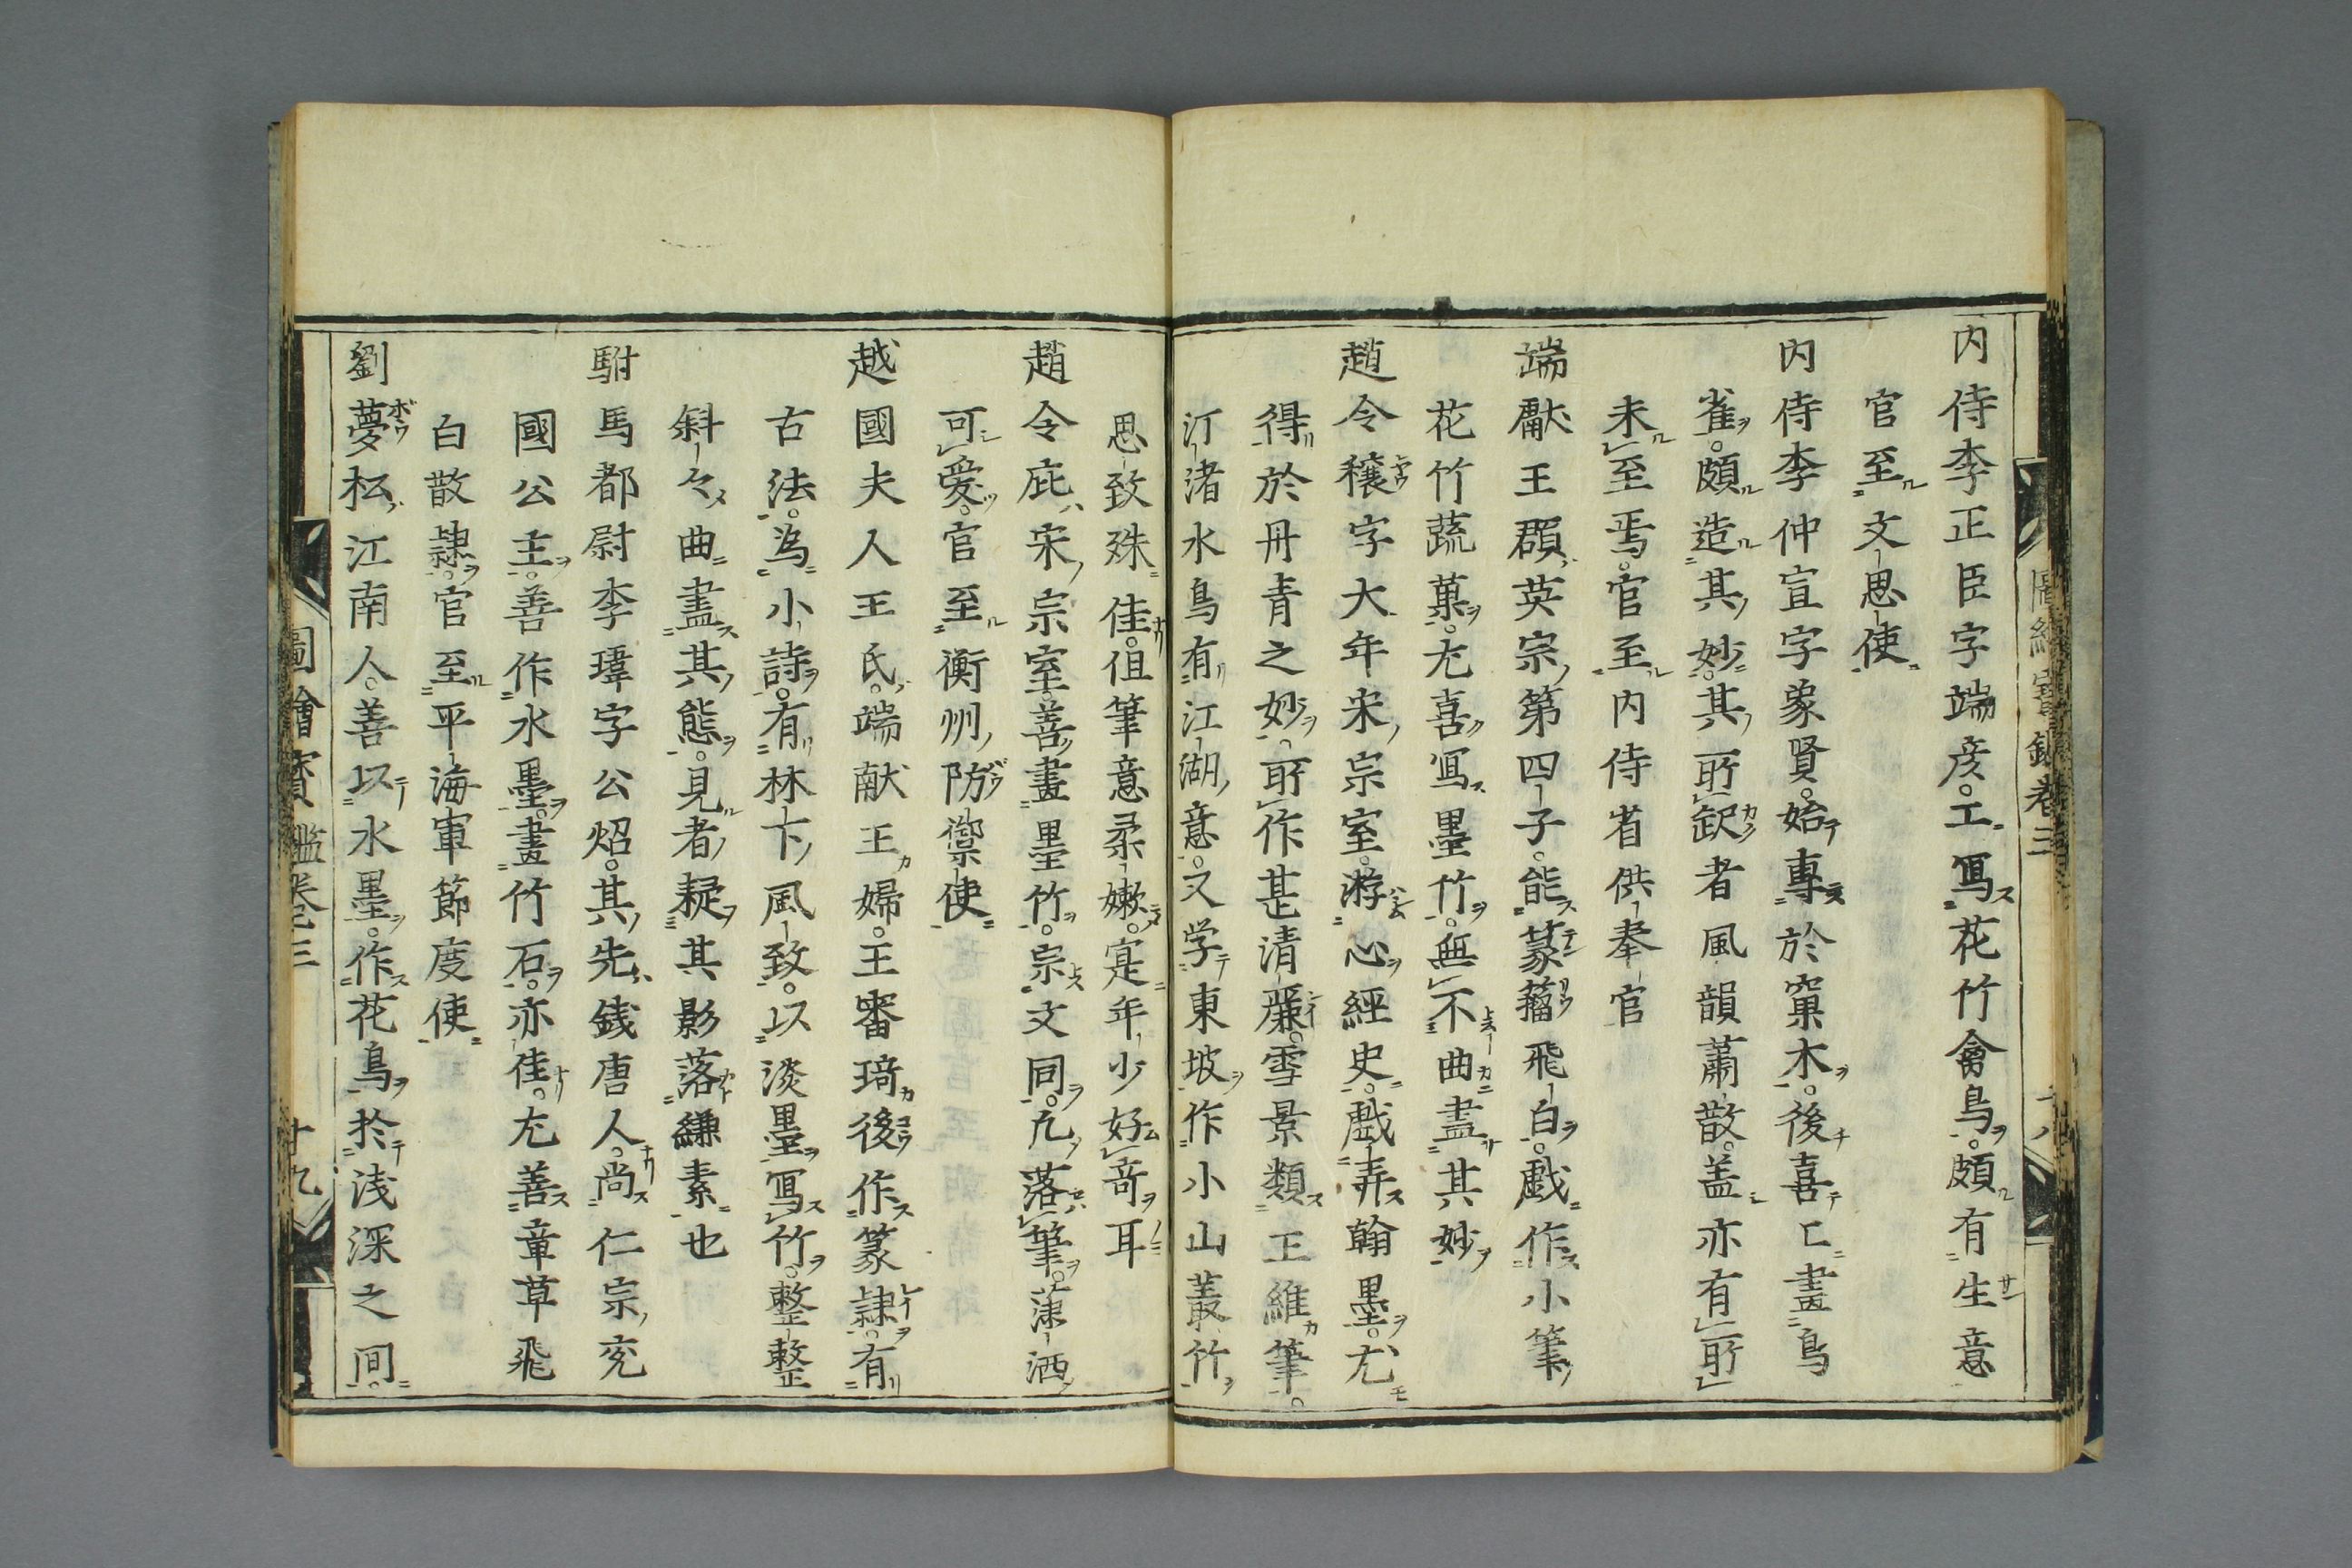 内侍李正臣字端彦工寫花竹禽鳥頗有生意
官至文思使
内侍李仲宣字象賢始專於窠木後喜工畫鳥
雀頗造其妙其所缺者風韻蕭散盖亦有所
未至焉官至内侍省供奉官
端獻王頵英宗第四子能篆籀飛白戲作小筆
花竹蔬菓尤喜寫墨竹無不曲盡其妙
趙令穰字大年宋宗室游心經史戲弄翰墨尤
得於丹青之妙所作甚清麗雪景類王維筆
汀渚水鳥有江湖意又学東坡作小山叢竹
思致殊佳但筆意柔嫩寔年少好竒耳
趙令庇宋宗室善畫墨竹宗文同凡落筆瀟洒
可愛官至衡州防禦使
越國夫人王氏端献王婦王審琦後作篆隷有
古法為小詩有林下風致以淡墨寫竹整整
斜々曲盡其態見者疑其影落縑素也
駙馬都尉李瑋字公炤其先銭唐人尚仁宗兖
國公主善作水墨畫竹石亦佳尤善章草飛
白散隷官至平海軍節度使
劉夢松江南人善以水墨作花鳥於浅深之間
圖繪寳鑑卷三
十九